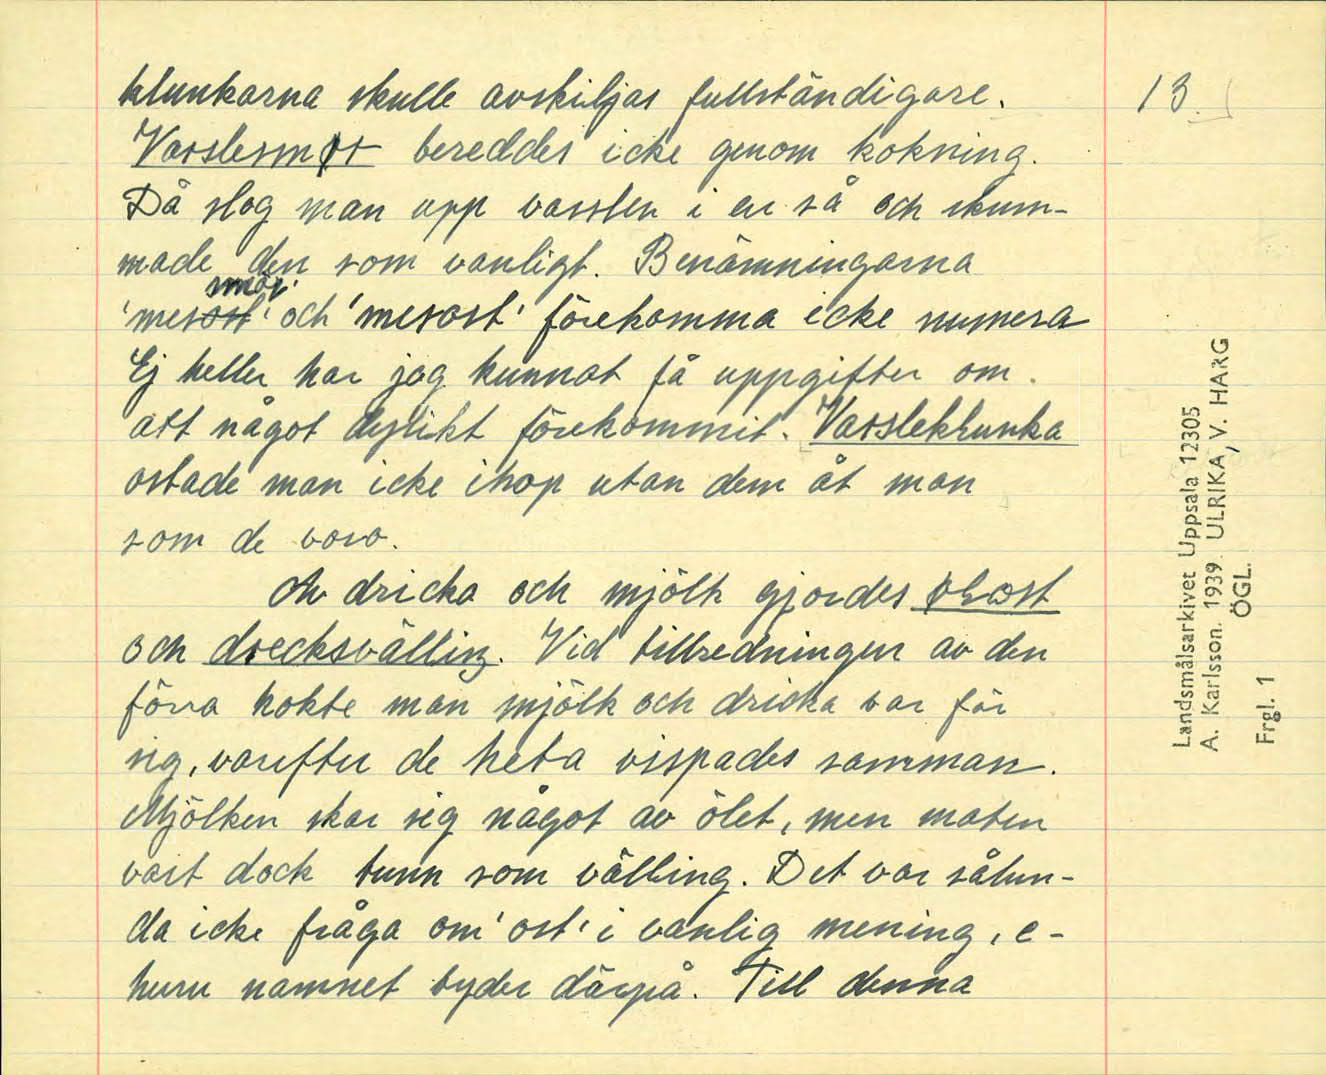 klunkarna skulle avskiljas fullständigare.
Vasslesmør bereddes icke genom kokning.
Då slog man upp vasslen i en så och skum-
made den som vanligt. Benämningarna
smör'
'mesost' och 'mesost' förekomma icke numera
Ej heller har jag kunnat få uppgifter om
att något dylikt förekommit. Vassleklunka
ostade man icke ihop utan dem åt man
som de voro.
Av dricka och mjölk gjordes øløst
och drecksvälling. Vid tillredningen av den
förra kokte man mjölk och dricka var för
sig, varefter de heta vispades samman.
Mjölken skar sig något av ölet, men maten
vart dock tunn som välling. Det var sålun-
da icke fråga om 'ost' i vanlig mening, e-
huru namnet tyder därpå. Till denna
13.
Landsmålsarkivet Uppsala 12305
A. Karlsson. 1939. ULRIKA, V. HARG
ÖGL.
Frgl. 1